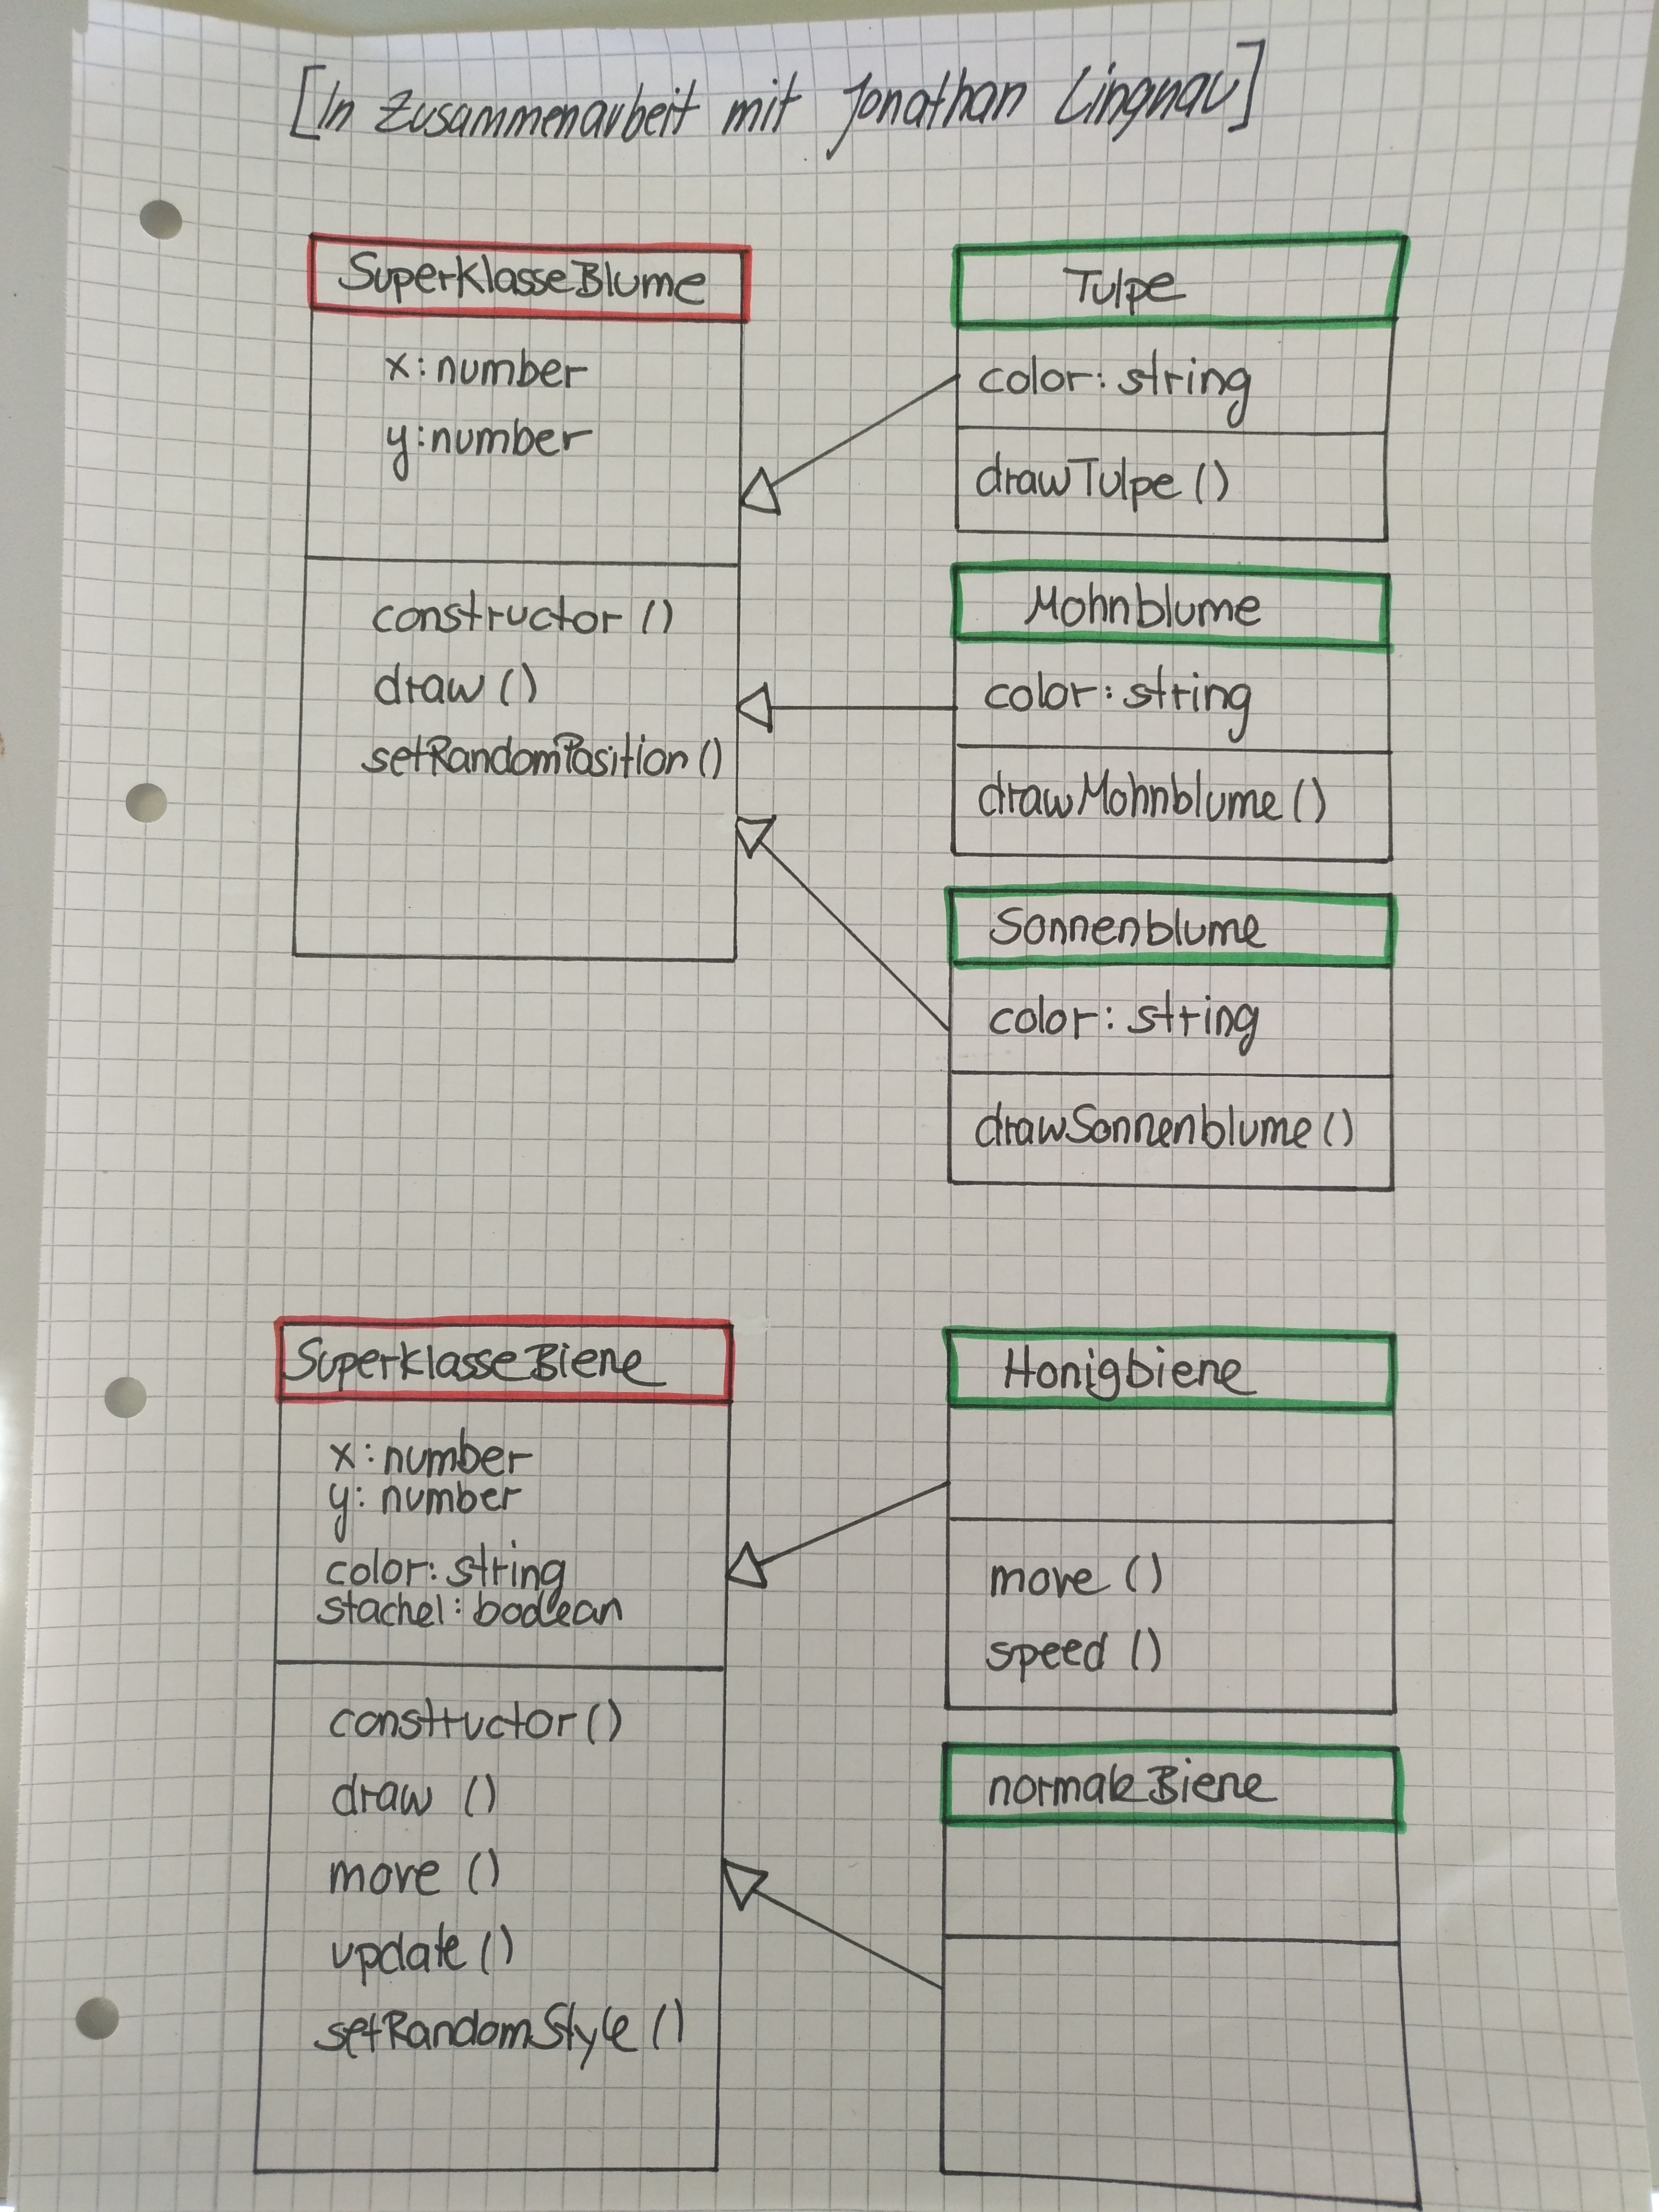 [In Zusammenarbeit mit Jonathan Lingnau]
SuperklasseBlume
x: number
y: number
constructor ()
draw ()
setRandomPosition ()
Tulpe
color: string
drawTulpe ()
Mohnblume
color: string
drawMohnblume ()
Sonnenblume
color: string
drawSonnenblume ()
SuperklasseBiene
x: number
y: number
color: string
stachel: boolean
constructor ()
draw ()
move ()
update ()
setRandomStyle ()
Honigbiene
move ()
speed ()
normaleBiene